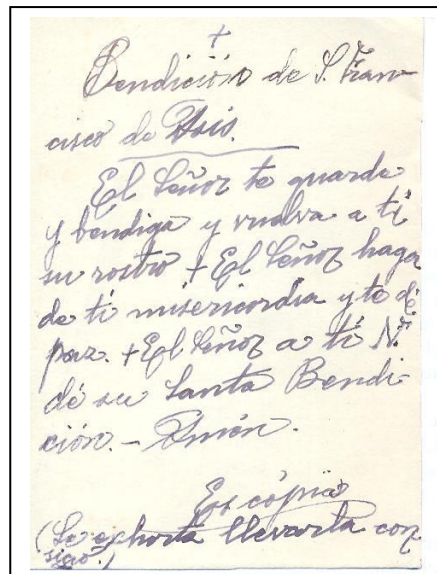 +
Bendición de S. Fran
cisco de Asis.
El Señor te guarde
y bendiga y vuelva a ti
su rostro + El Señor haga
de ti misericordia y te dé
paz. + El Señor a ti N.
dé su Santa Bendi-
ción. - Amén.
Es cópia
(Se exhorta llevarla con
sigo.)